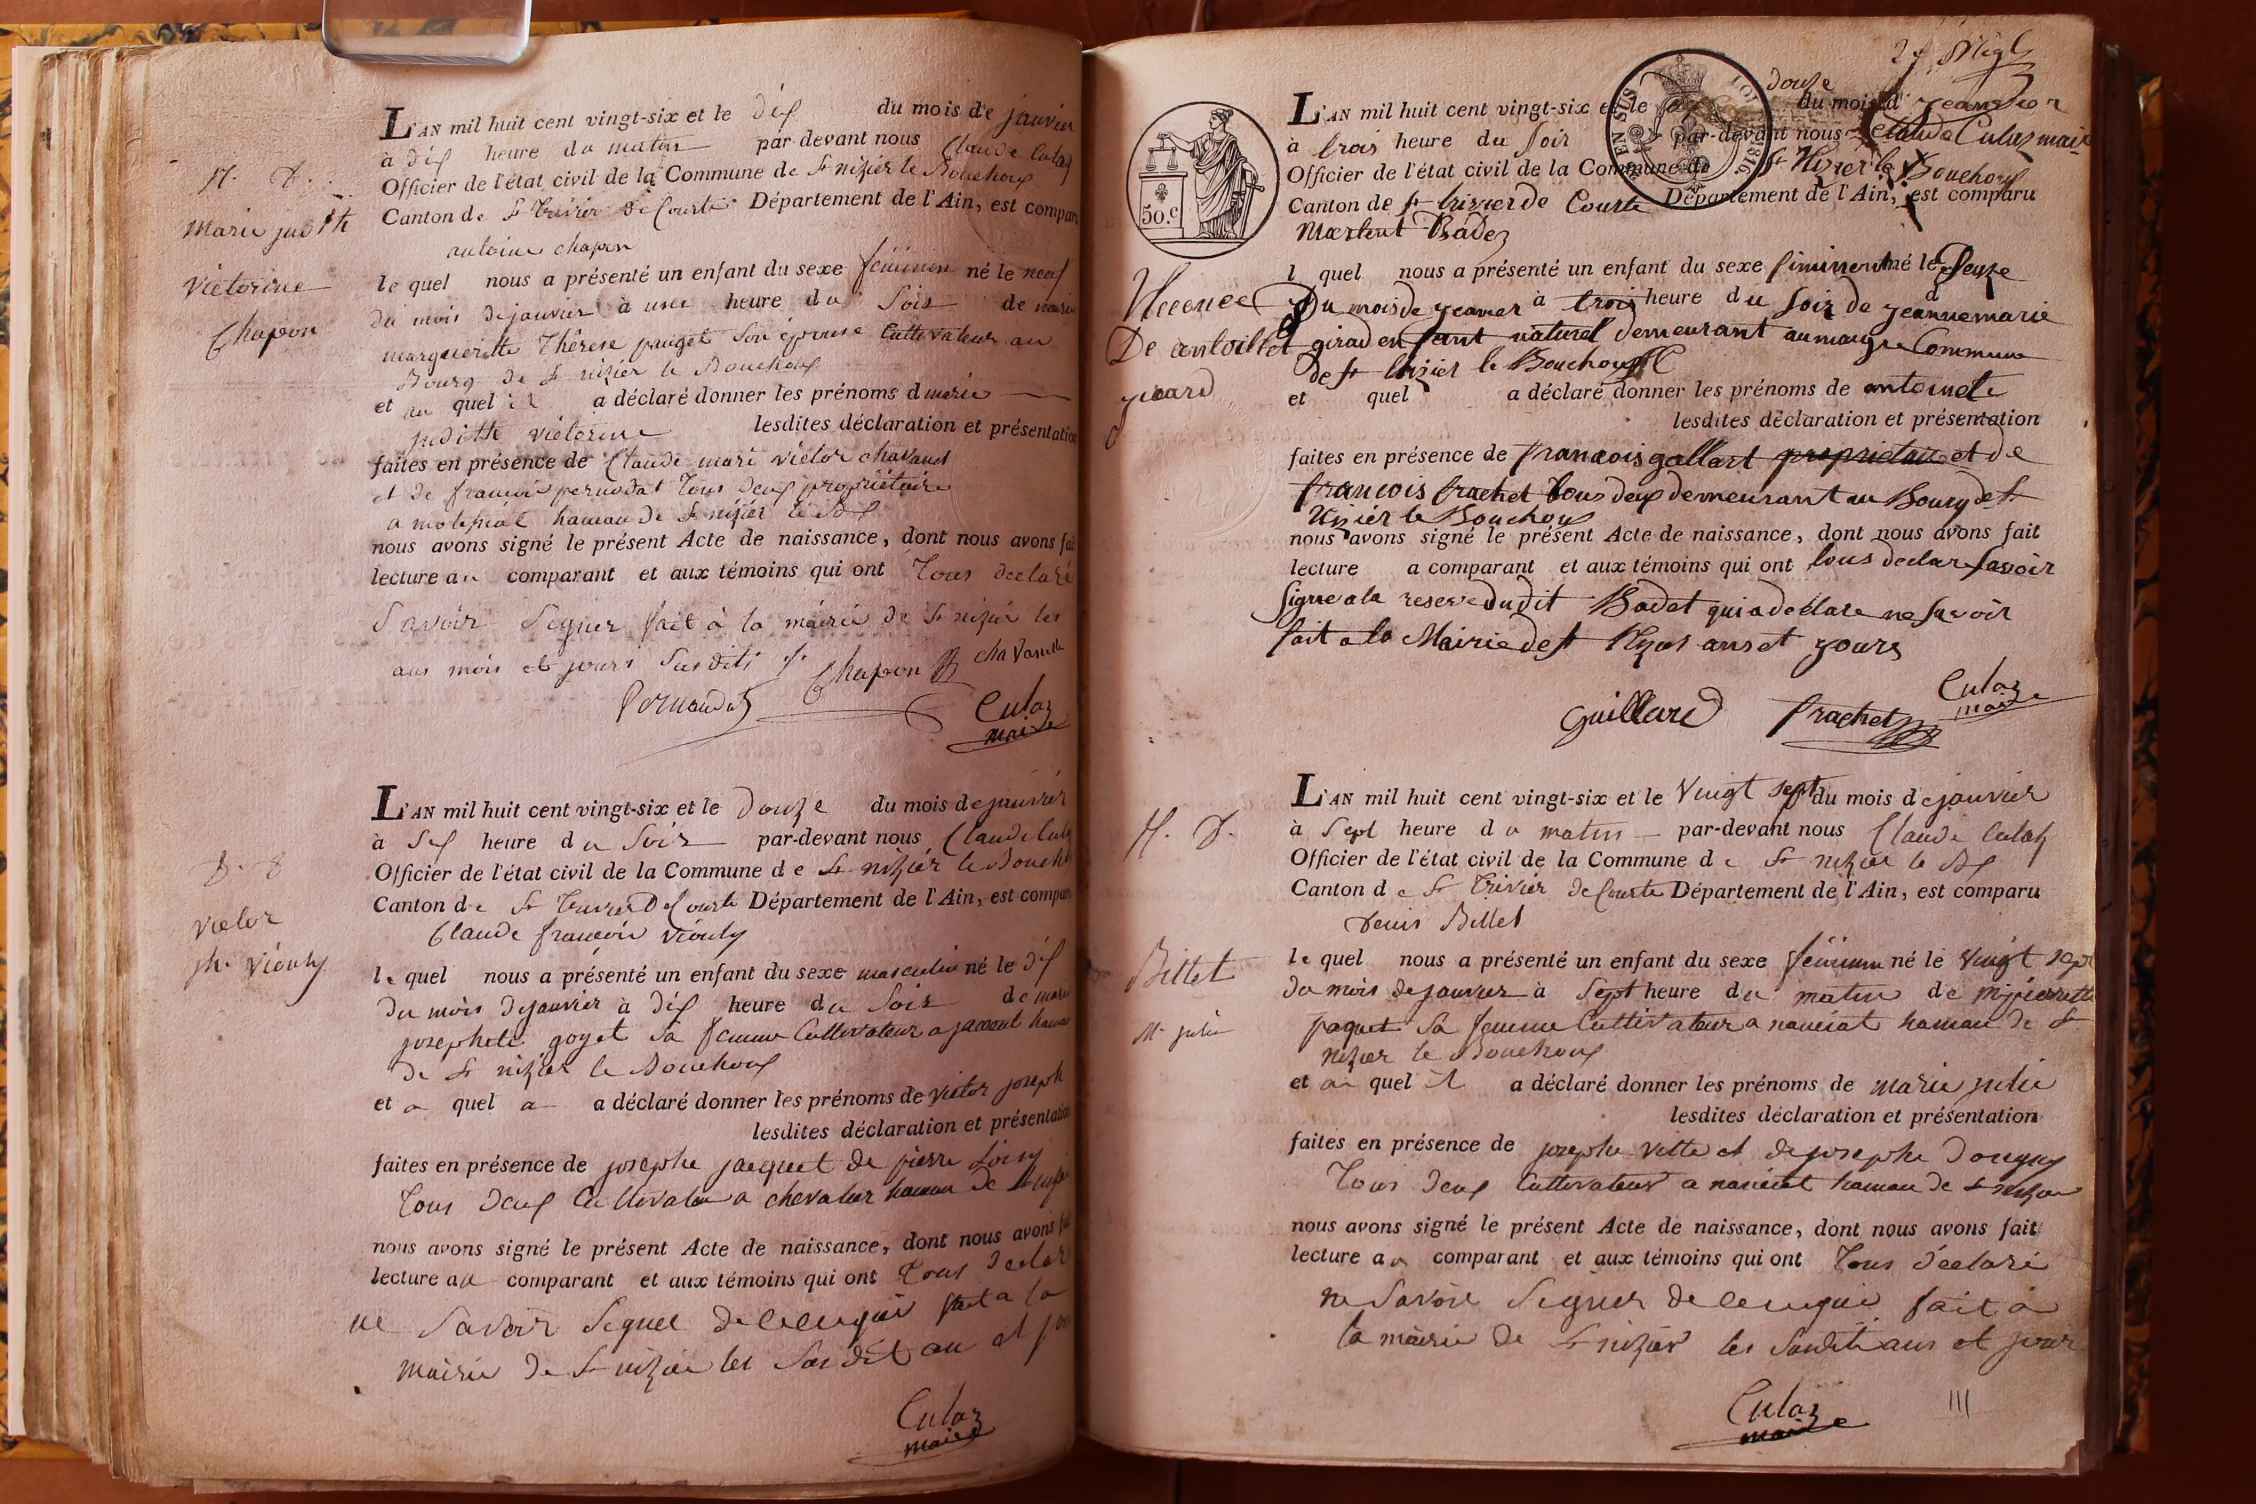 N. D.
Marie judith
victorine
Chapon
L'AN mil huit cent vingt-six et le dix du mois de janvier
à dix heure du matin par-devant nous Claude Culaz
Officier de l'état civil de la Commune de St nizier le Bouchoux
Canton de St Trivier de Courte Département de l'Ain, est comparu
antoine chapon
le quel nous a présenté un enfant du sexe féminin né le neuf
du mois de janvier à une heure du Soir de marie
margueritte Thérese pauget Son épouse Cultivateur au
Bourg de St nizier le Bouchoux
et au quel il a déclaré donner les prénoms d marie
judith victorine lesdites déclaration et présentation
faites en présence de Claude marie victor chavanel
et de francois pernodat Tous deux propriétaire
a hameau de St nizier le Bx
nous avons signé le présent Acte de naissance, dont nous avons fait
lecture au comparant et aux témoins qui ont Tous declaré
Savoir Signer fait à la mairie de St nizier les
ans mois et jours Susdits Chapon
Culaz
maire
victor
jh. viouly
L'AN mil huit cent vingt-six et le Douze du mois de janvier
à Six heure du Soir par-devant nous Claude Culaz
Officier de l'état civil de la Commune de St nizier le Bouch
Canton de St Trivier de Courte Département de l'Ain, est comparu
Claude francois viouly
le quel nous a présenté un enfant du sexe masculin né le dix
du mois de janvier à dix heure du Soir de marie
josephete goyet sa femme Cultivateur a hameau
de St nizier le Bouchoux
et a quel a a déclaré donner les prénoms de victor joseph
lesdites déclaration et présentation
faites en présence de josephe jacquet de pierre Loisy
Tous deux Cultivateur a chevaleur hameau de St nizier
nous avons signé le présent Acte de naissance, dont nous avons fait
lecture au comparant et aux témoins qui ont Tous declar
ne Savoir Signer de ce enquis fait a la
mairie de St nizier les Susdit an et jour
Culaz
maire
50.c
EN SUS
1816
L'AN mil huit cent vingt-six et le douze du mois d janvier
à trois heure du Soir par-devant nous Claude Culaz maire
Officier de l'état civil de la Commune de St Nizier le Bouchoux
Canton de St trivier de Courte Département de l'Ain, est comparu
Badez
l quel nous a présenté un enfant du sexe feminen né le Douze
Du mois de janvier à trois heure du soir de jeanne marie
girad enfant naturel demeurant au Commune
de St Nizier le Bouchoux
De antoillet
girard
et quel a déclaré donner les prénoms de antoinete
lesdites déclaration et présentation
faites en présence de francois gallart proprietaire et de
francois frachet tous deux demeurant au Bourg de St
Nizier le Bouchoux
nous avons signé le présent Acte de naissance, dont nous avons fait
lecture a comparant et aux témoins qui ont tous declare savoir
Signe a la reserve dudit Badet qui a déclare ne savoir
fait a la Mairie de St ans et jours
Guillard frachet Culaz
maire
N. D.
Billet
Me julie
L'AN mil huit cent vingt-six et le vingt sept du mois de janvier
à sept heure du matin par-devant nous Claude Culaz
Officier de l'état civil de la Commune de St nizier le Bx
Canton de St Trivier de Courte Département de l'Ain, est comparu
Denis Billet
le quel nous a présenté un enfant du sexe féminin né le vingt sept
du mois de janvier à sept heure du matin de
paquet sa femme Cultivateur a nanciat hameau de St
nizier le Bouchoux
et au quel il a déclaré donner les prénoms de marie julie
lesdites déclaration et présentation
faites en présence de josephe vette et de josephe Donguy
Tous deux Cultivateur a nanciat hameau de St nizier
nous avons signé le présent Acte de naissance, dont nous avons fait
lecture au comparant et aux témoins qui ont Tous déclaré
ne Savoir Signer de ce enquis fait à
la mairie de St nizier les Susdit ans et jour
Culaz
maire